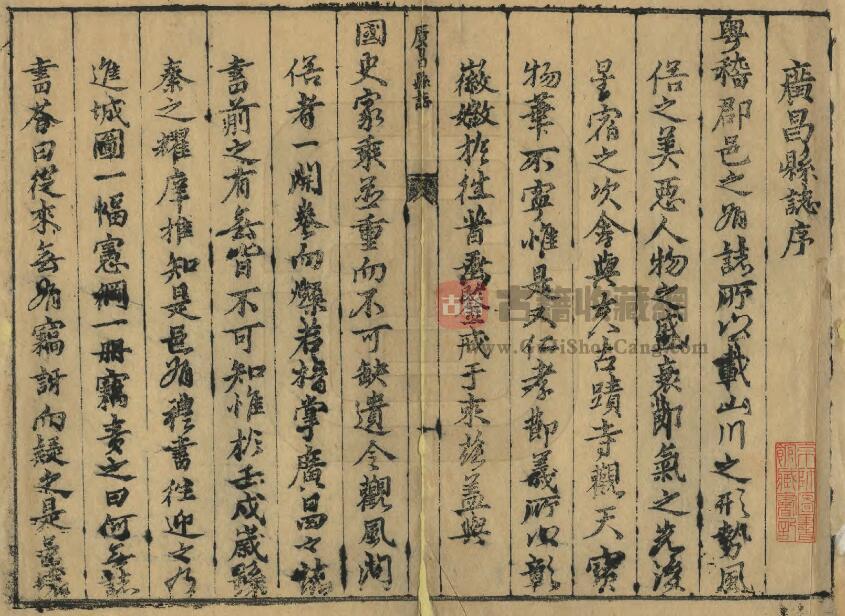 廣昌縣誌序
粤稽郡邑之有誌所以載山川之形勢風
俗之美惡人物之盛衰節氣之先後
星宿之次舍與夫古蹟寺觀天寶
物華不寧惟是又仁孝節義所以彰
徽媺於徃昔垂鑒戒于來茲蓋與
廣昌縣誌
國史家乘並重而不可缺遺令觀風問
俗者一開卷而燦若指掌廣昌之誌
書前之有無皆不可知惟於壬戌歲豫
秦之耀摩推知是邑有禮書徃迎之乃
進城圖一幅憲綱一冊竊責之曰何無誌
書答曰從來無有竊訝而疑之是邑
古籍收藏網
京師圖書館藏書記